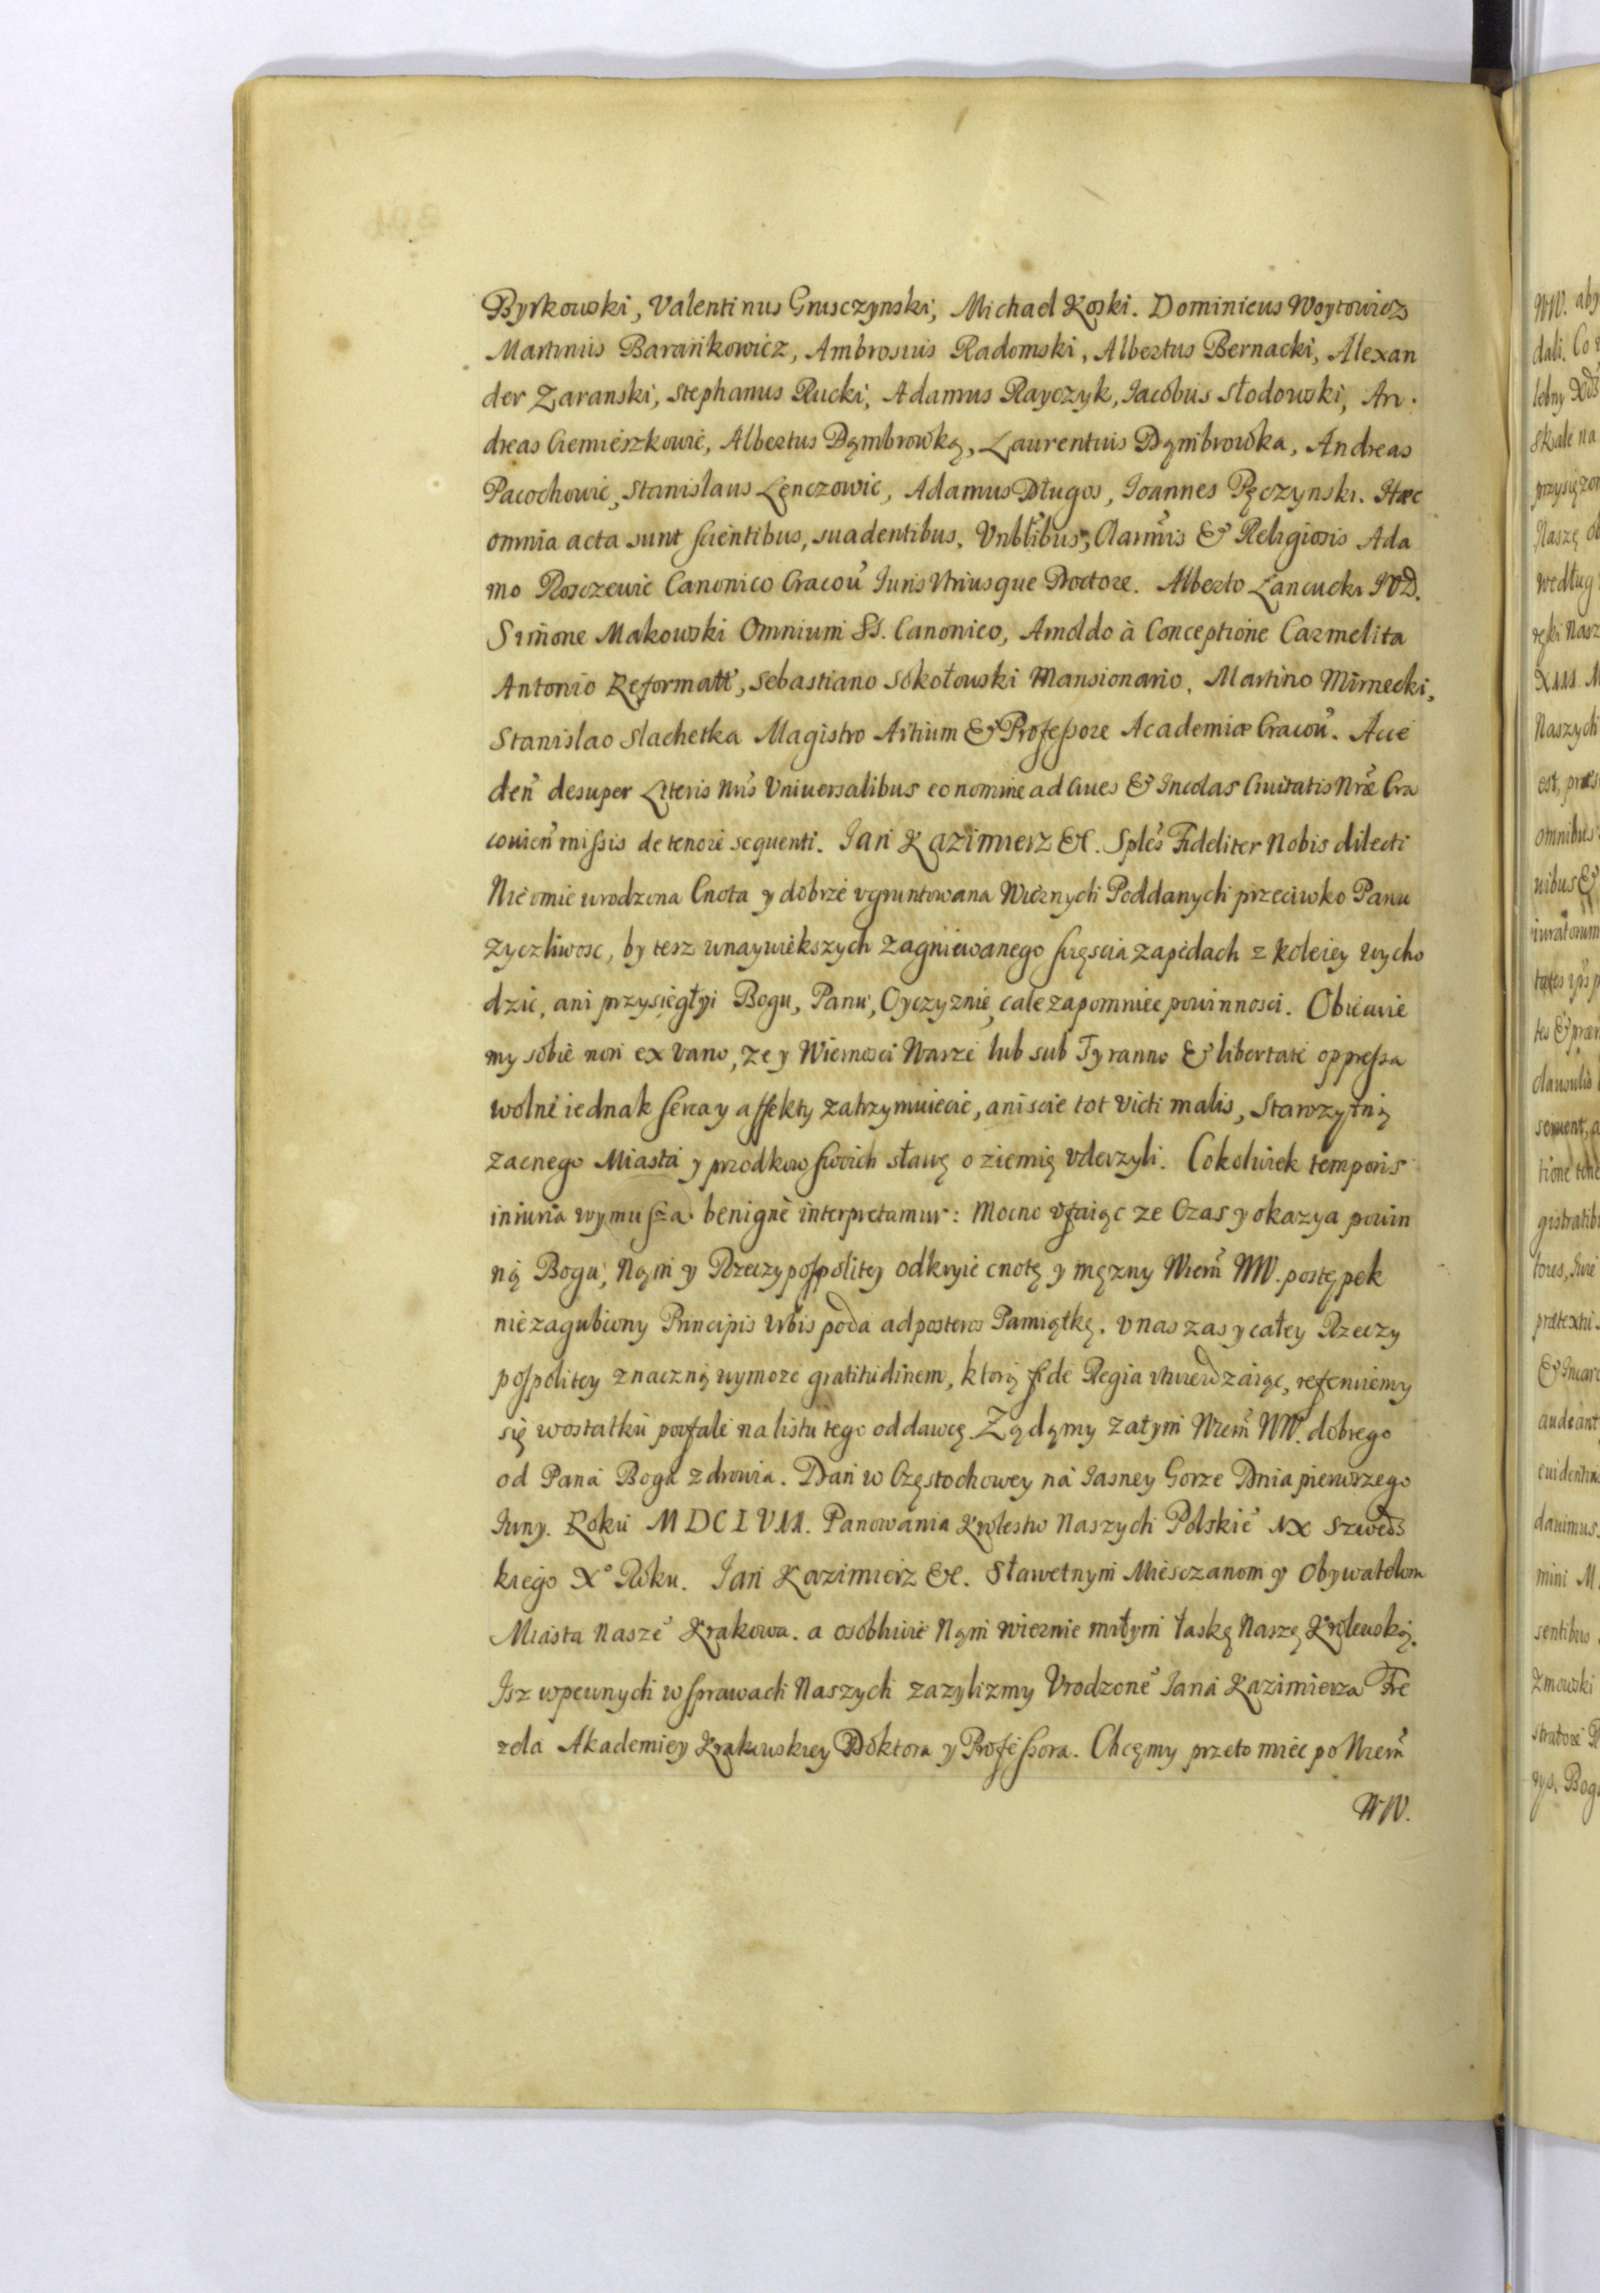 Byſkowski, Valentinus Grusczynski, Michael Koski. Dominicus Woytowicz
Martinus Barańkowicz, Ambrosius Radomski, Albertus Bernacki, Alexan
der Zaranski, Stephanus Rucki, Adamus Rayczyk, Iacobus Słodowski, An.
dreas Ciemierzkowic, Albertus Dąmbrowką, Laurentius Dąmbrowka, Andreas
Pacochowic, Stanislaus Lęnczowic, Adamus Długos, Ioannes Pęczynski. Hæc
omnia acta sunt ſcientibus, suadentibus, Vnblibus, Clarmis & Religiosis Ada
mo Roszewic Canonico Cracou Iuris Vtriusque Doctore. Alberto Lancucki IVD.
Simone Makowski Omnium SS. Canonico, Arnoldo à Conceptione Carmelita
Antonio Reformatt, Sebastiano Sokołowski Mansionario, Martino Mirnecki,
Stanislao Slachetka Magistro Artium & Profeſsore Academiæ Cracou. Acce
den desuper Literis Nris Vniuersalibus eo nomine ad Ciues & Incolas Ciuitatis Nræ Cra
couien miſsis de tenore sequenti. Ian Kazimierz &c. Sples Fideliter Nobis dilecti
Nieomie urodzona Cnota y dobrze vgruntowana Wiernych Poddanych przeciwko Panu
zyczliwosc, by tesz w naywiekszych zagniewanego ſczęscia zapędach z koleiey wycho
dzic, ani przysięgłyi Bogu, Panu, Oyczyznie, cale zapomniec powinnosci. Obiecuie
my sobie non ex vano, ze y Wiernosci Wasze lub sub Tyranno & libertate oppreſsa
wolne iednak ſerca y affekty zatrzymuiecie, ani scie tot victi malis, Starozytną
zacnego Miasta y przodkow ſwoich sławę o ziemię vderzyli. Cokolwiek temporis
iniuria wymuſza benignè interpretamur: Mocno vfaiąc ze Czas y okazya powin
ną Bogu, Nąm y Rzeczypoſpolitey odkryie cnotę y męzny Wierm WW. postępek
niezagubiony Principis Vrbis poda ad posteros Pamiątkę. v nas zas y całey Rzeczy
poſpolitey znaczną wymoze gratitudinem, ktorą fide Regia vtwierdzaiąc, referuiemy
się w ostatku poufale na listu tego oddawcę. Ządąmy zatym Wierm WW. dobrego
od Pana Boga zdrowia. Dan w Częstochowey na Iasney Gorze Dnia pierwszego
Iuny. Roku MDCLVII. Panowania Krolestw Naszych Polskie IX Szweds
kiego X° Roku. Ian Kazimierz &c. Sławetnym Miesczanom y Obywatelom
Miasta Nasze Krakowa. a osobliwie Nąm wiernie miłym łaskę Naszę Krolewską.
Isz w pewnych w ſprawach Naszych zazylizmy Vrodzone Iana Kazimierza Fre
zela Akademiey Krakowskiey Doktora y Profeſsora. Chcęmy przeto miec po Wierm
WW.